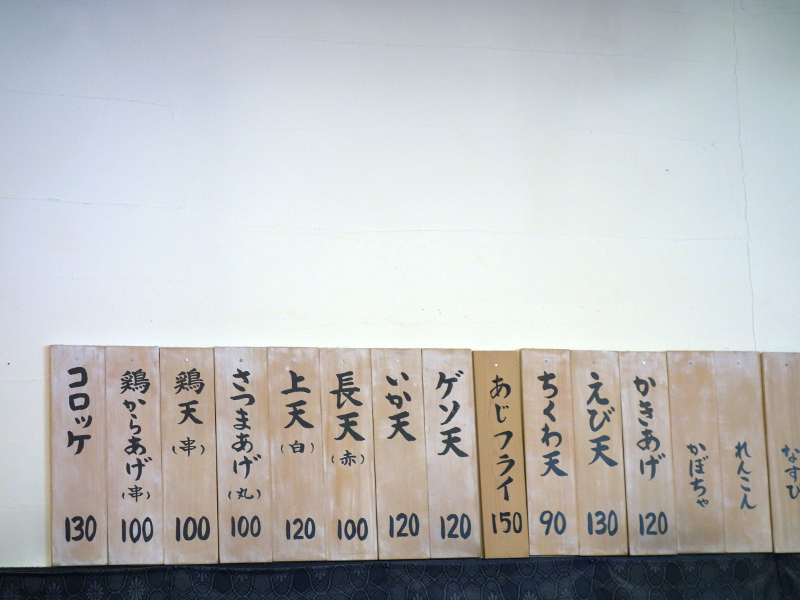 コロッケ
130
鶏からあげ
(串)
100
鶏天
(串)
100
さつまあげ
(丸)
100
上天
(白)
120
長天
(赤)
100
いか天
120
ゲソ天
120
あじフライ
150
ちくわ天
90
えび天
130
かきあげ
120
かぼちゃ
れんこん
なすび